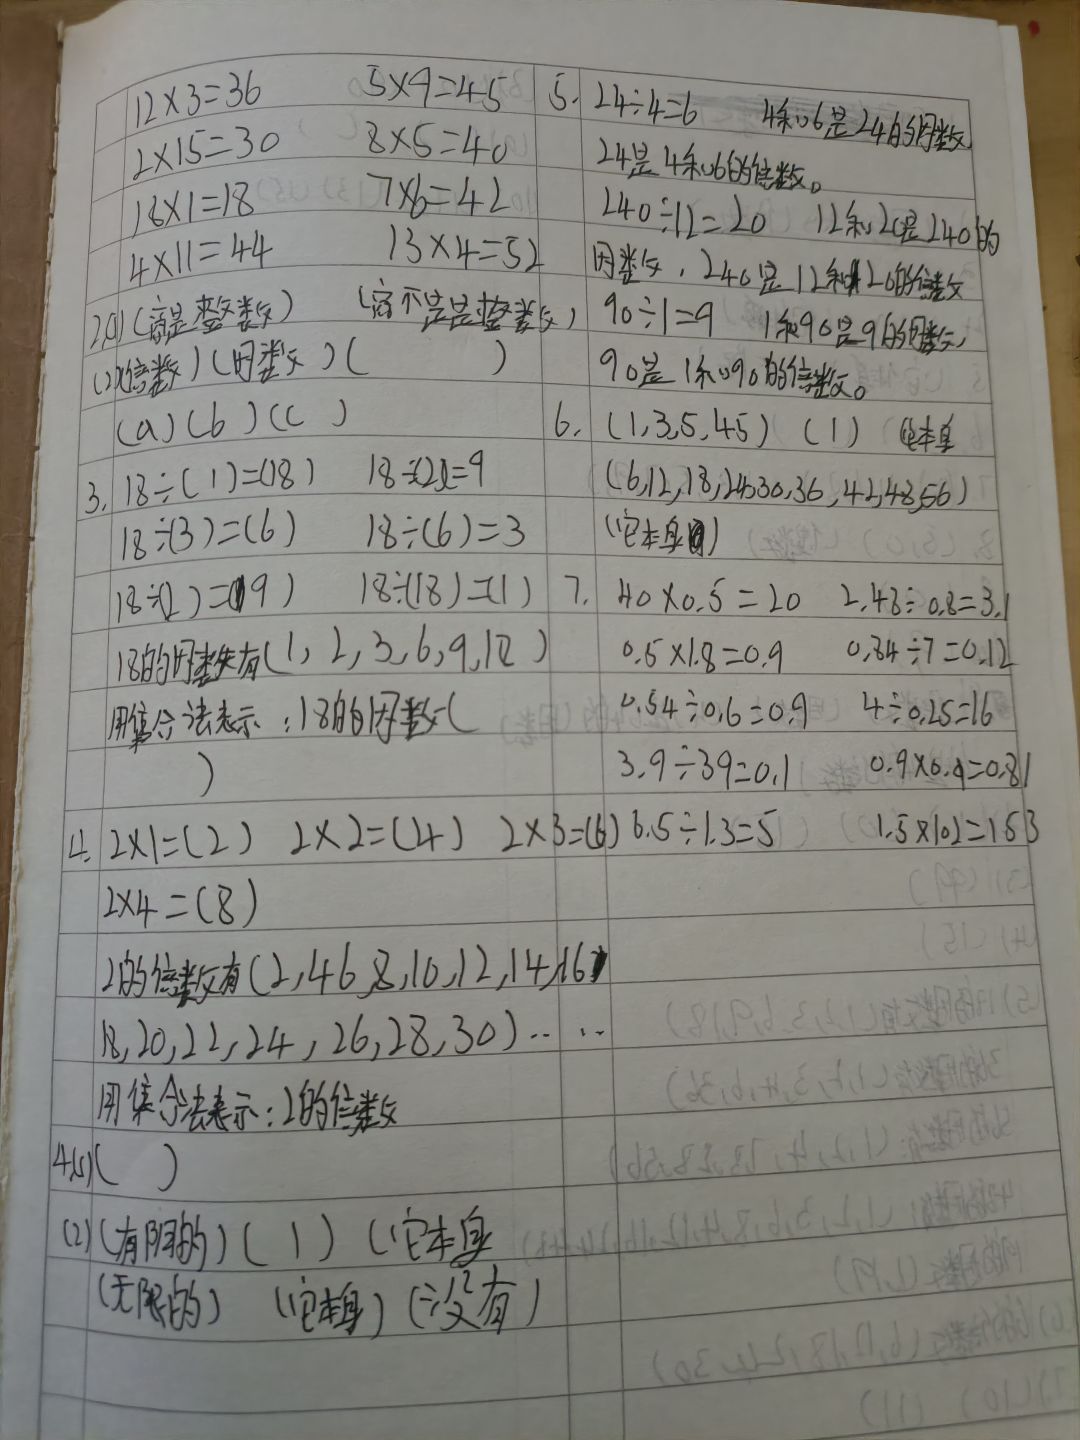 12×3=36 5×9=45
2×15=30 8×5=40
18×1=18 7×6=42
4×11=44 13×4=52
2.(1)(商是整数) (商不是是整数)
(2)(倍数)(因数)( )
(a)(b)(c )
3. 18÷(1)=(18) 18÷(2)=9
18÷(3)=(6) 18÷(6)=3
18÷(2)=(9) 18÷(18)=(1)
18的因数有(1, 2, 3, 6, 9, 18)
用集合法表示:18的因数(
)
4. 2×1=(2) 2×2=(4) 2×3=(6)
2×4=(8)
2的倍数有(2,4 6,8,10,12,14,16
18,20,22,24,26,28,30)‥ ‥
用集合法表示:2的倍数
4.(1)( )
(2)(有限的)( 1 )(它本身
(无限的) (它本身)(没有)
5. 24÷4=6 4和6是24的因数
24是4和6的倍数。
240÷12=20 12和20是240的
因数,240是12和20的倍数
90÷1=9 1和90是9的因数,
90是1和90的倍数。
6. (1,3,5,45) (1) 它本身
(6,12,18,24,30,36,42,48,56)
(它本身)
7. 40×0.5=20 2.48÷0.8=3.1
0.5×1.8=0.9 0.84÷7=0.12
0.54÷0.6=0.9 4÷0.25=16
3.9÷39=0.1 0.9×0.9=0.81
6.5÷1.3=5 1.5×102=153